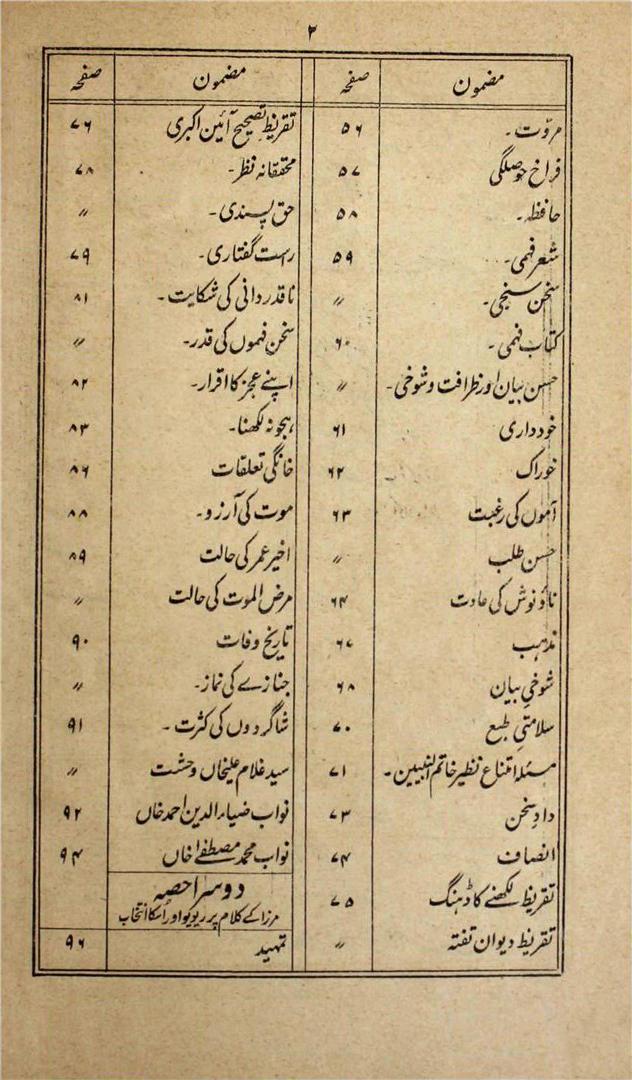 ۲
مضمون صفحہ
مروّت۔ ۵۶
فراخ حوصلگی ۵۷
حافظہ۔ ۵۸
شعر فہمی۔ ۵۹
سخن سنجی۔ 〃
کتاب فہمی۔ ۶۰
حسن بیان اور ظرافت و شوخی۔ 〃
خودداری ۶۱
خوراک ۶۲
آموں کی رغبت ۶۳
حسن طلب 〃
ناؤ نوش کی عادت ۶۴
مذہب ۶۷
شوخیِ بیان ۶۸
سلامتیِ طبع ۷۰
مسئلہ امتناع نظیر خاتم النبیین۔ ۷۱
دادِ سخن ۷۳
انصاف ۷۴
تقریظ لکھنے کا ڈہنگ ۷۵
تقریظ دیوان تفتہ 〃
مضمون صفحہ
تقریظ تصحیح آئین اکبری ۷۶
محققانہ نظر۔ ۷۸
حق پسندی۔ 〃
راست گفتاری۔ ۷۹
ناقدردانی کی شکایت۔ ۸۱
سخن فہموں کی قدر۔ 〃
اپنے عجز کا اقرار۔ ۸۲
ہجو نہ لکھنا۔ ۸۳
خانگی تعلقات ۸۶
موت کی آرزو۔ ۸۸
اخیر عمر کی حالت ۸۹
مرض الموت کی حالت 〃
تاریخ وفات ۹۰
جنازے کی نماز۔ 〃
شاگردوں کی کثرت۔ ۹۱
سید غلام علیخاں وحشت 〃
نواب ضیاء الدین احمد خاں ۹۲
نواب محمد مصطفےٰ خاں ۹۴
دوسرا حصہ
مرزا کے کلام پر ریویو اور اُسکا انتخاب
تمہید ۹۶